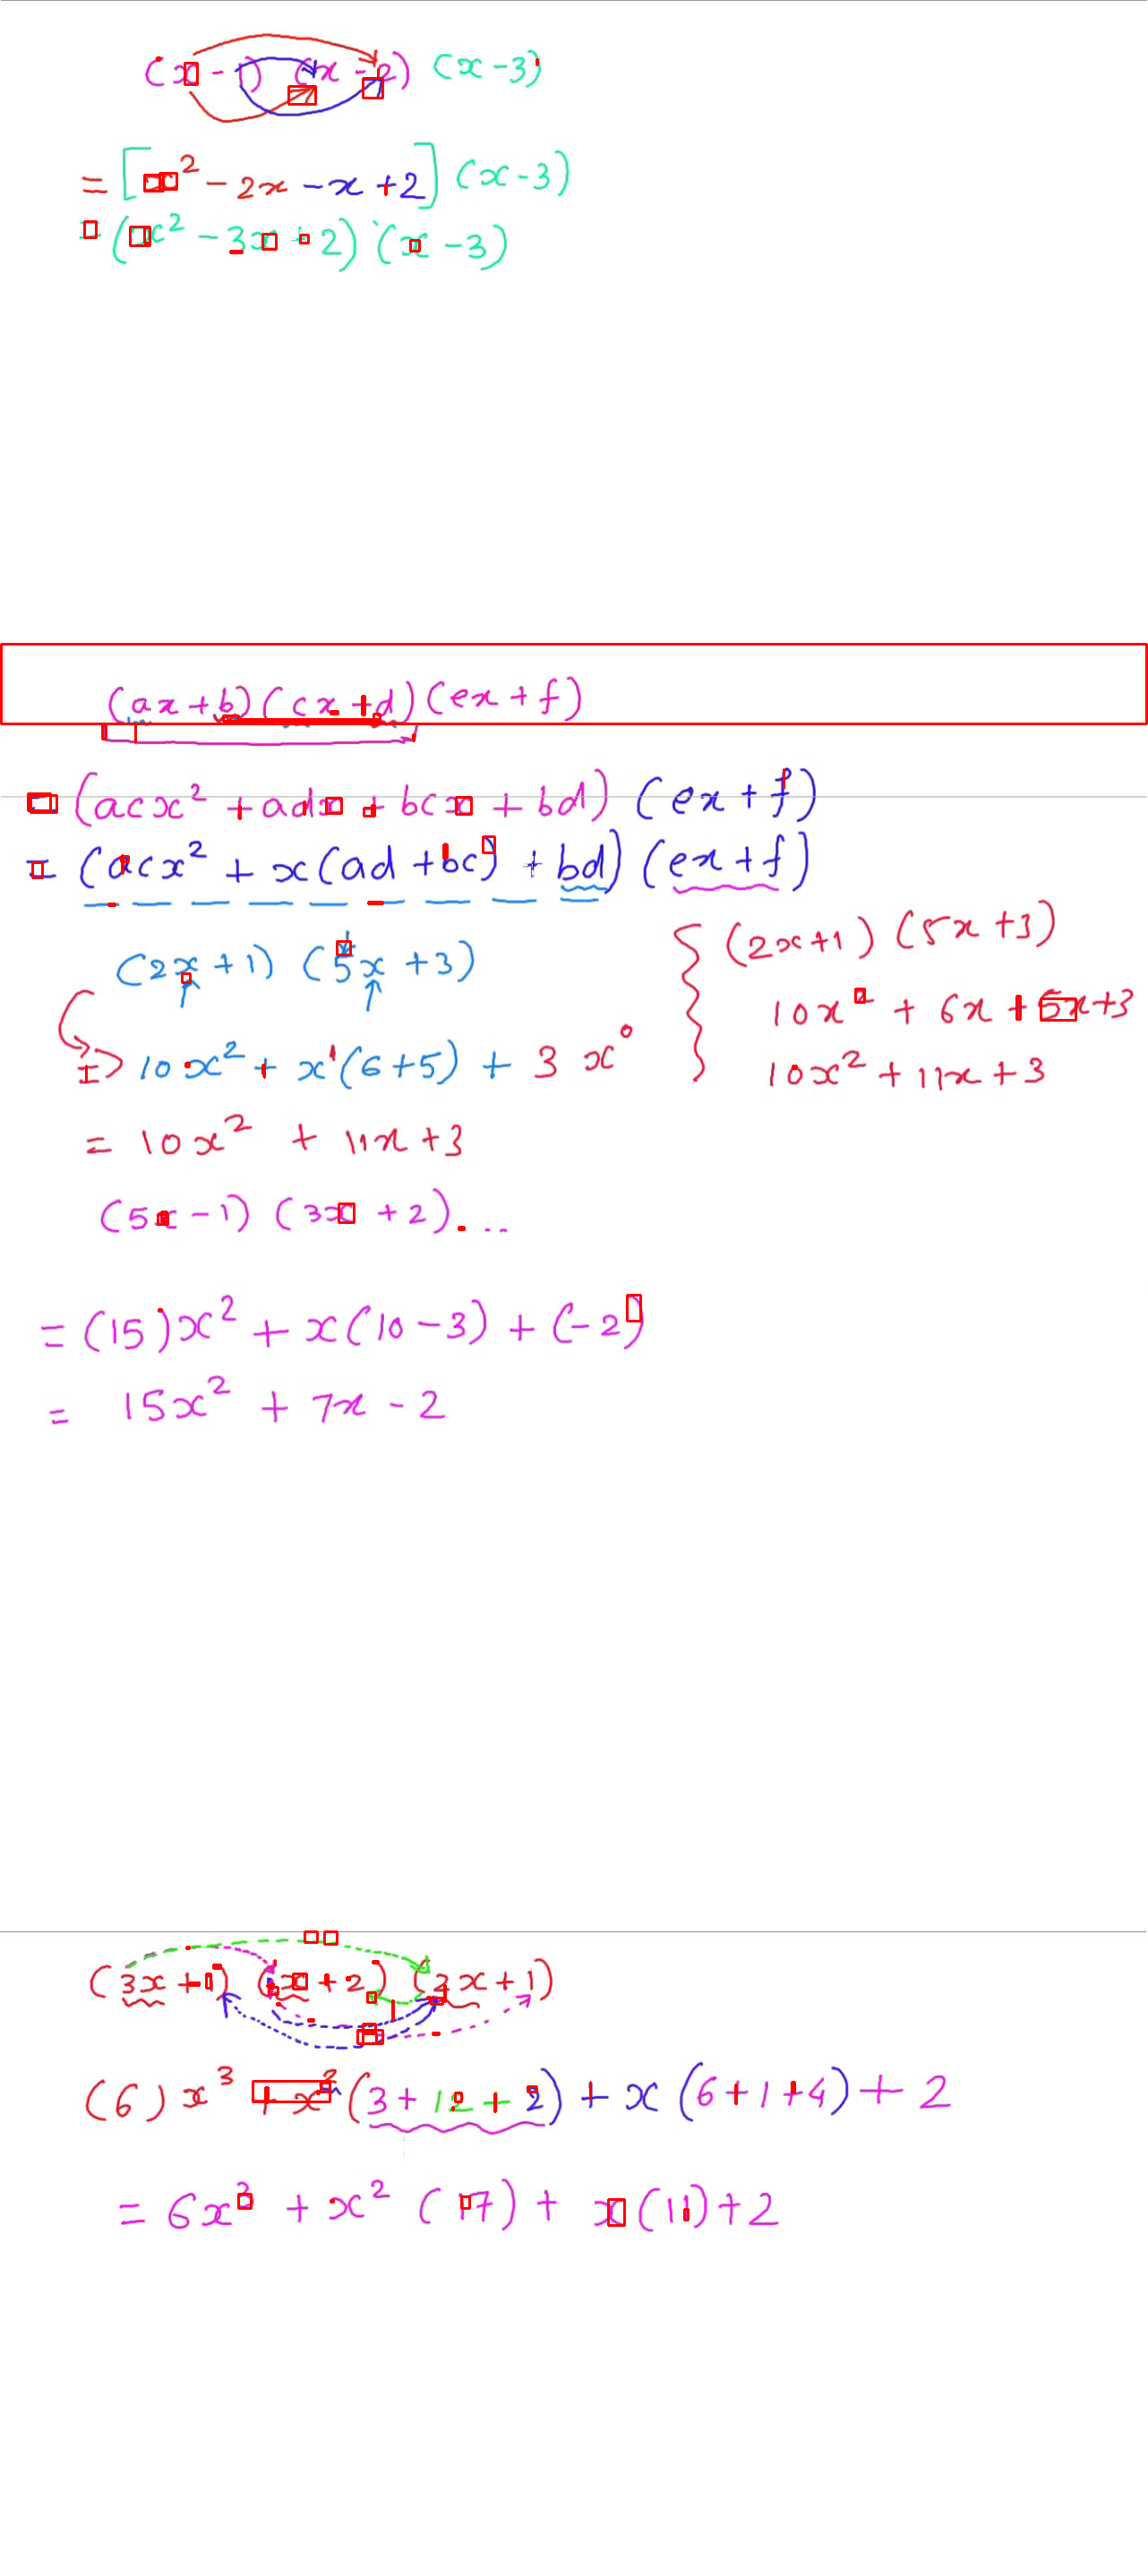 (x - 1) (x - 2) (x - 3)
= [x² - 2x - x + 2] (x - 3)
= (x² - 3x + 2) (x - 3)
(ax + b) (cx + d) (ex + f)
= (acx² + adx + bcx + bd) (ex + f)
= (acx² + x(ad + bc) + bd) (ex + f)
(2x + 1) (5x + 3)
10x² + x¹(6 + 5) + 3 x⁰
= 10x² + 11x + 3
(2x + 1) (5x + 3)
10x² + 6x + 5x + 3
10x² + 11x + 3
(5x - 1) (3x + 2) ...
= (15)x² + x(10 - 3) + (-2)
= 15x² + 7x - 2
(3x + 1) (x + 2) (2x + 1)
(6) x³ + x² (3 + 12 + 2) + x (6 + 1 + 4) + 2
= 6x³ + x² (17) + x (11) + 2